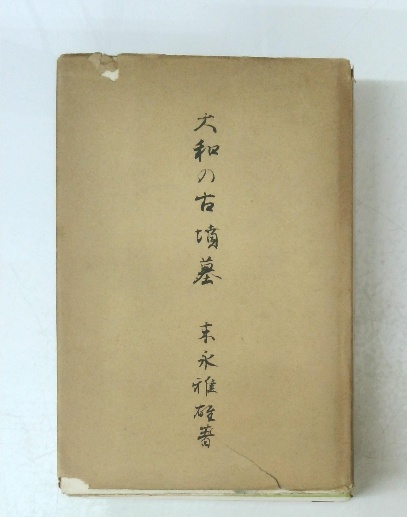 大和の古墳墓
末永雅雄著